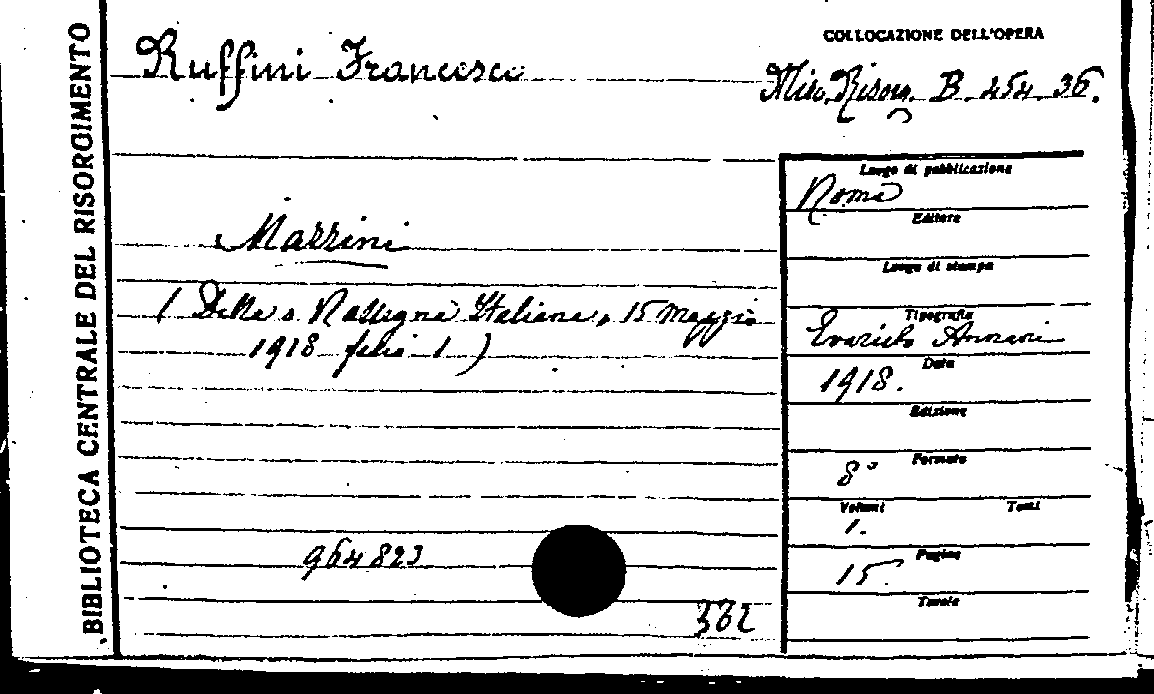 BIBLIOTECA CENTRALE DEL RISORGIMENTO
Ruffini Francesco
COLLOCAZIONE DELL'OPERA
Misc. Risorg. B. 454. 36.
Mazzini
( Della " Rassegna Italiana, 15 maggio
1918 1 )
964823
332
Luogo di pubblicazione
Roma
Editore
Luogo di stampa
Tipografia
Evaristo Armani
Data
1918.
Edizione
Formato
8°
Volumi Tomi
1.
Pagine
15.
Tavole